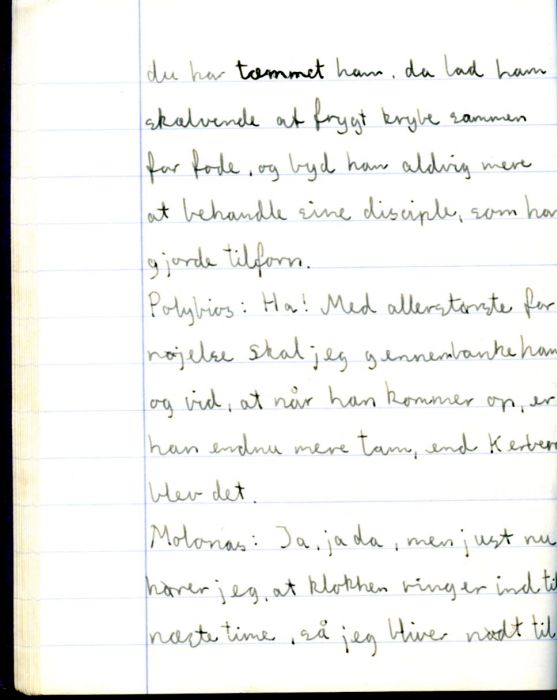 du har tæmmet ham, da lad ham
skælvende af frygt krybe sammen
for fode, og byd ham aldrig mere
at behandle sine disciple, som han
gjorde tilforn.
Polybios: Ha! Med allerstørste for
nøjelse skal jeg gennembanke ham
og vid, at når han kommer op, er
han endnu mere tam, end Kerber
blev det.
Molonas: Ja, ja da, men just nu
hører jeg, at klokken ringer ind til
næste time, så jeg bliver nødt til